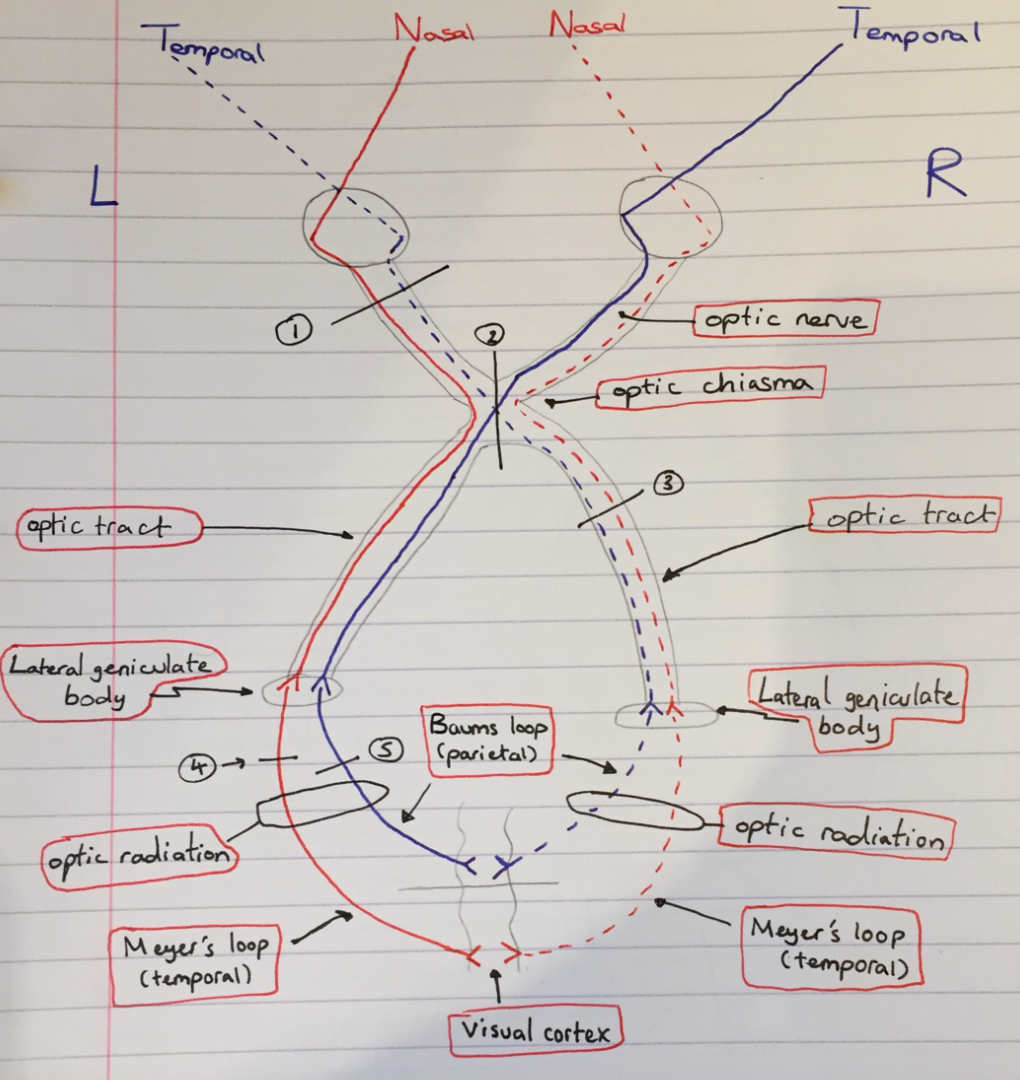 Temporal
Nasal
Nasal
Temporal
L
R
1
2
optic nerve
optic chiasma
3
optic tract
optic tract
Lateral geniculate
body
Lateral geniculate
body
Baums loop
(parietal)
4
5
optic radiation
optic radiation
Meyer's loop
(temporal)
Meyer's loop
(temporal)
Visual cortex